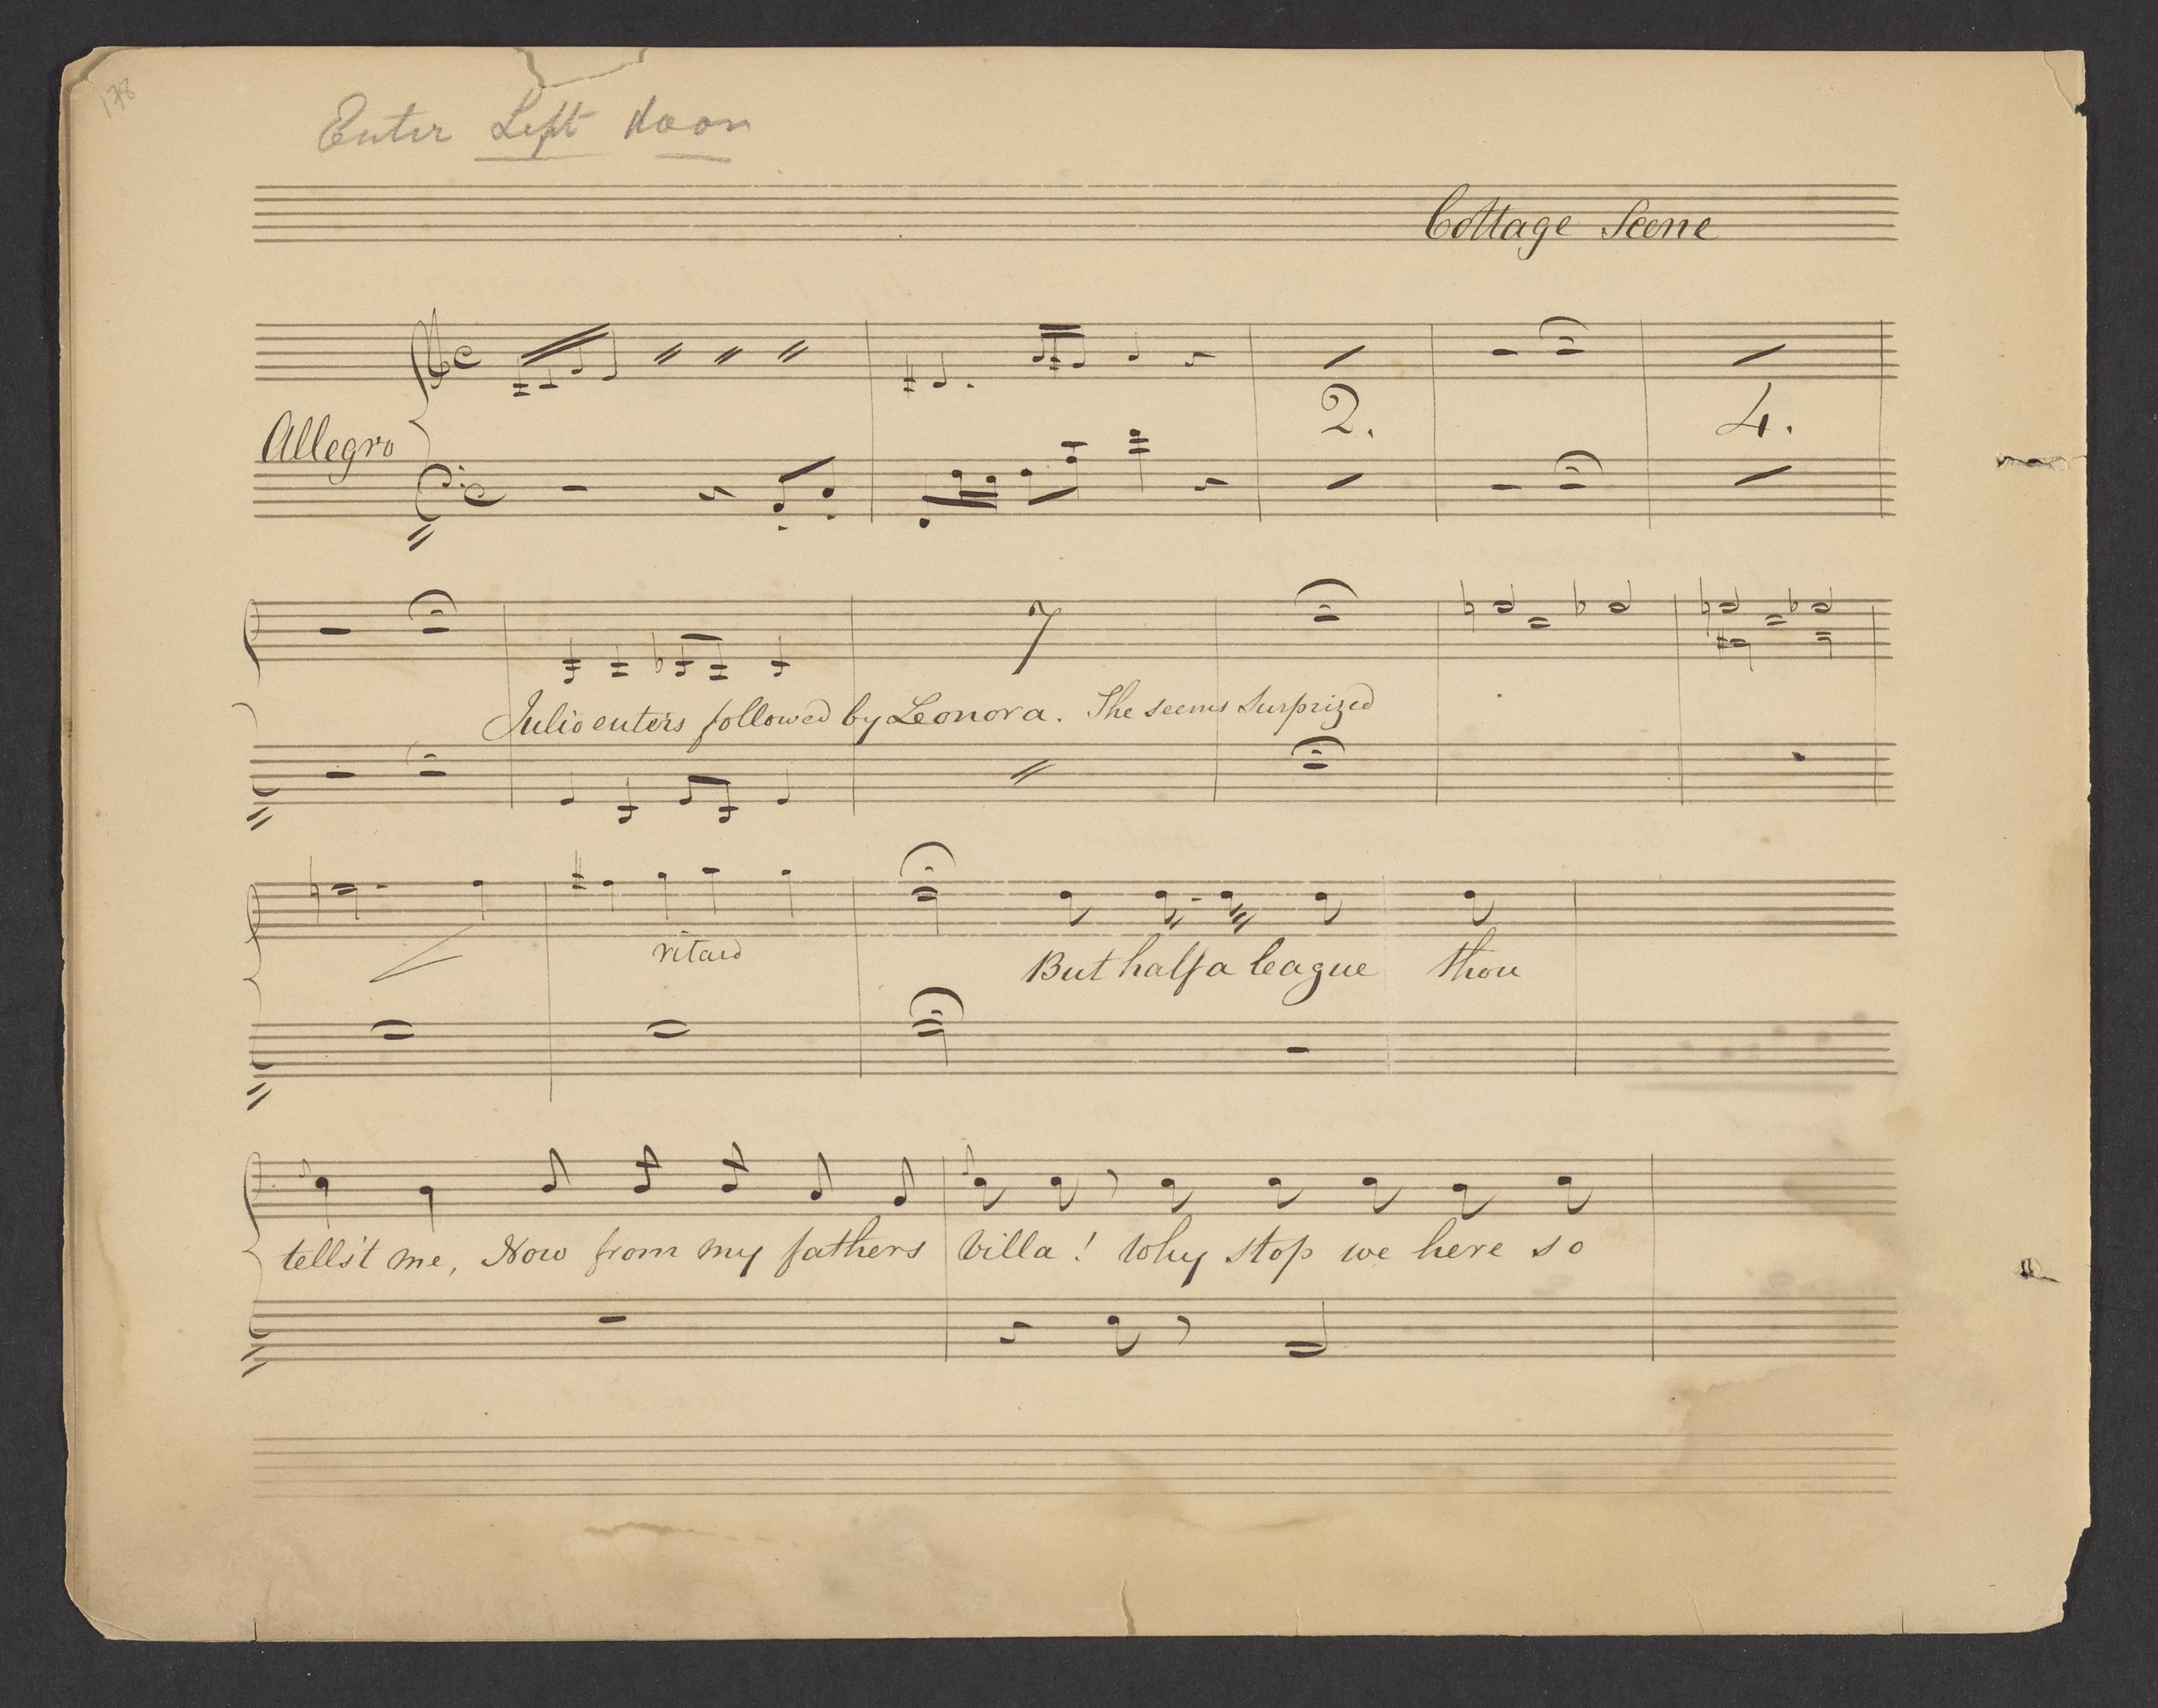 178
Enter Left door
Cottage Scene
Allegro
2.
4.
Julio enters followed by Leonora. She seems Surprized
7
ritard
But half a league thou
tells't me, Now from my fathers villa! Why stop we here so